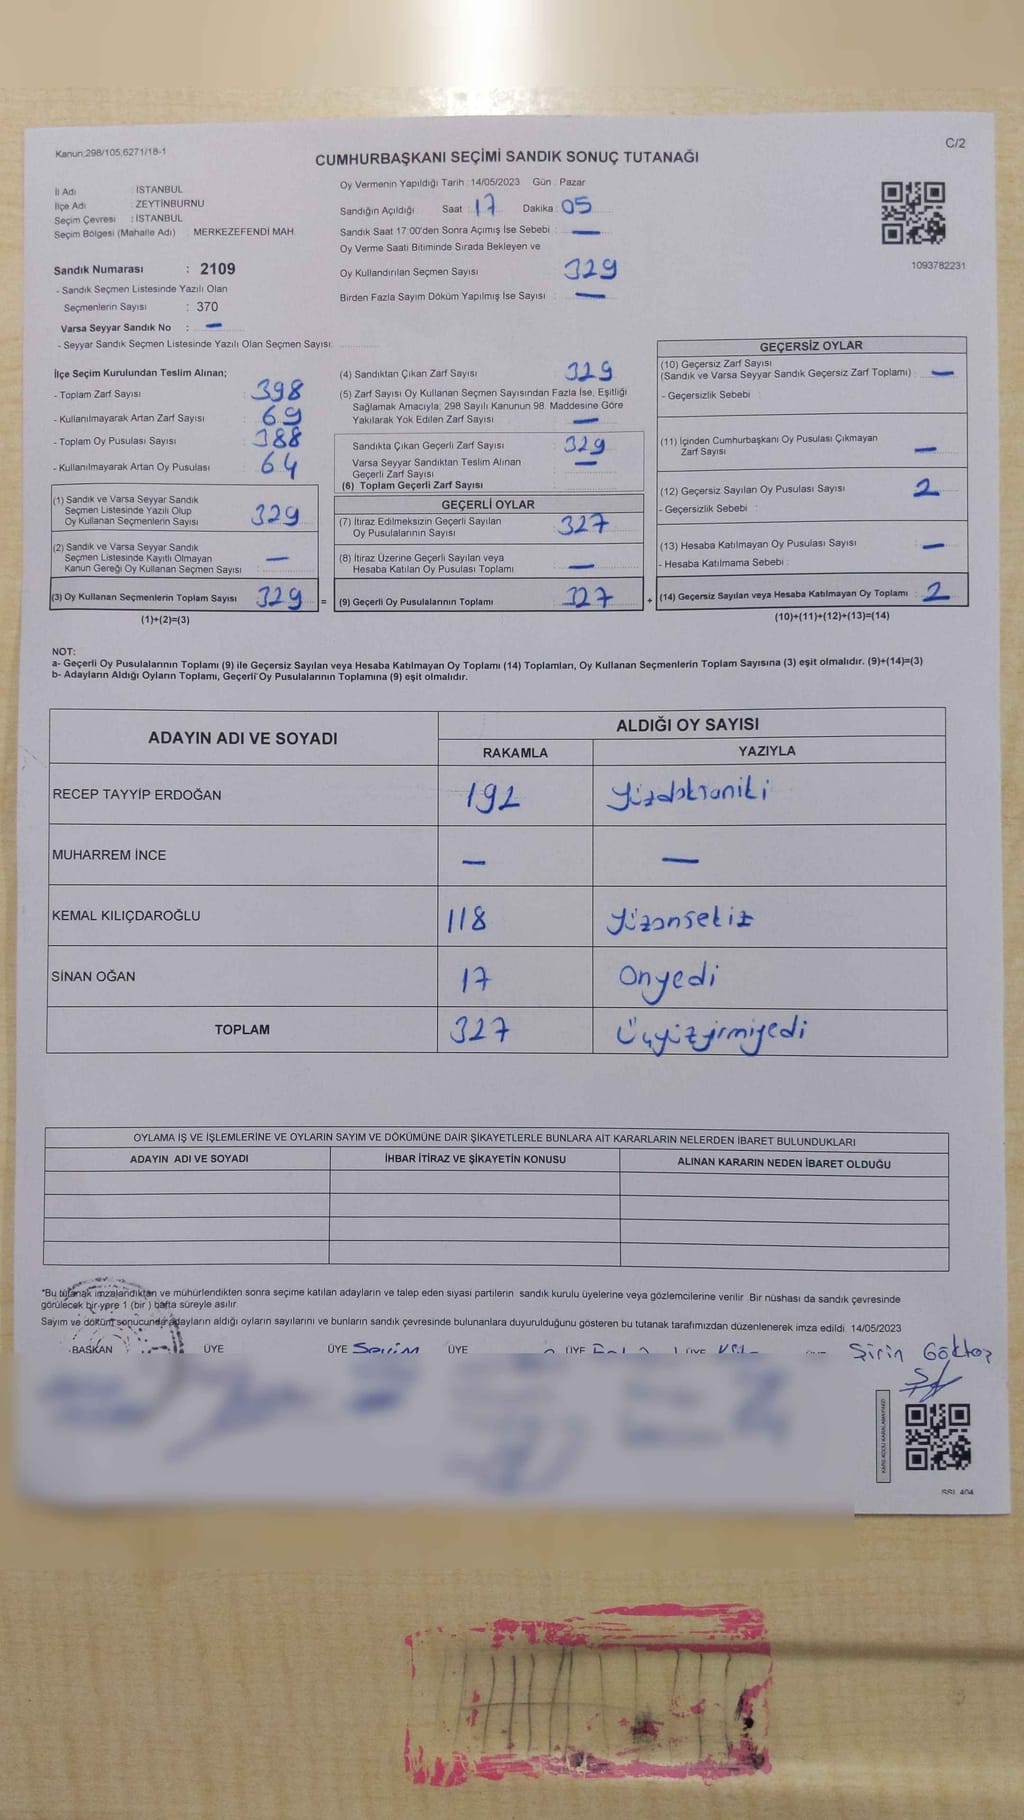 Kanun:298/105,6271/18-1
C/2
CUMHURBAŞKANI SEÇİMİ SANDIK SONUÇ TUTANAĞI
İl Adı : İSTANBUL
İlçe Adı : ZEYTİNBURNU
Seçim Çevresi : İSTANBUL
Seçim Bölgesi (Mahalle Adı) MERKEZEFENDİ MAH.
Sandık Numarası : 2109
- Sandık Seçmen Listesinde Yazılı Olan
Seçmenlerin Sayısı : 370
Varsa Seyyar Sandık No : —
- Seyyar Sandık Seçmen Listesinde Yazılı Olan Seçmen Sayısı:
Oy Vermenin Yapıldığı Tarih : 14/05/2023 Gün : Pazar
Sandığın Açıldığı Saat : 17 Dakika : 05
Sandık Saat 17:00'den Sonra Açımış İse Sebebi : —
Oy Verme Saati Bitiminde Sırada Bekleyen ve
Oy Kullandırılan Seçmen Sayısı : 329
Birden Fazla Sayım Döküm Yapılmış İse Sayısı : —
1093782231
İlçe Seçim Kurulundan Teslim Alınan;
- Toplam Zarf Sayısı : 398
- Kullanılmayarak Artan Zarf Sayısı : 69
- Toplam Oy Pusulası Sayısı : 388
- Kullanılmayarak Artan Oy Pusulası : 64
(1) Sandık ve Varsa Seyyar Sandık
Seçmen Listesinde Yazılı Olup
Oy Kullanan Seçmenlerin Sayısı : 329
(2) Sandık ve Varsa Seyyar Sandık
Seçmen Listesinde Kayıtlı Olmayan
Kanun Gereği Oy Kullanan Seçmen Sayısı : —
(3) Oy Kullanan Seçmenlerin Toplam Sayısı : 329 =
(1)+(2)=(3)
(4) Sandıktan Çıkan Zarf Sayısı : 329
(5) Zarf Sayısı Oy Kullanan Seçmen Sayısından Fazla İse, Eşitliği
Sağlamak Amacıyla, 298 Sayılı Kanunun 98. Maddesine Göre
Yakılarak Yok Edilen Zarf Sayısı : —
Sandıkta Çıkan Geçerli Zarf Sayısı : 329
Varsa Seyyar Sandıktan Teslim Alınan
Geçerli Zarf Sayısı : —
(6) Toplam Geçerli Zarf Sayısı :
GEÇERLİ OYLAR
(7) İtiraz Edilmeksizin Geçerli Sayılan
Oy Pusulalarının Sayısı : 327
(8) İtiraz Üzerine Geçerli Sayılan veya
Hesaba Katılan Oy Pusulası Toplamı : —
(9) Geçerli Oy Pusulalarının Toplamı : 327 +
GEÇERSİZ OYLAR
(10) Geçersiz Zarf Sayısı
(Sandık ve Varsa Seyyar Sandık Geçersiz Zarf Toplamı) : —
- Geçersizlik Sebebi :
(11) İçinden Cumhurbaşkanı Oy Pusulası Çıkmayan
Zarf Sayısı : —
(12) Geçersiz Sayılan Oy Pusulası Sayısı : 2
- Geçersizlik Sebebi :
(13) Hesaba Katılmayan Oy Pusulası Sayısı : —
- Hesaba Katılmama Sebebi :
(14) Geçersiz Sayılan veya Hesaba Katılmayan Oy Toplamı : 2
(10)+(11)+(12)+(13)=(14)
NOT:
a- Geçerli Oy Pusulalarının Toplamı (9) ile Geçersiz Sayılan veya Hesaba Katılmayan Oy Toplamı (14) Toplamları, Oy Kullanan Seçmenlerin Toplam Sayısına (3) eşit olmalıdır. (9)+(14)=(3)
b- Adayların Aldığı Oyların Toplamı, Geçerli Oy Pusulalarının Toplamına (9) eşit olmalıdır.
ADAYIN ADI VE SOYADI ALDIĞI OY SAYISI
RAKAMLA YAZIYLA
RECEP TAYYİP ERDOĞAN 192 Yüzdoksaniki
MUHARREM İNCE — —
KEMAL KILIÇDAROĞLU 118 Yüzonsekiz
SİNAN OĞAN 17 Onyedi
TOPLAM 327 Üçyüzyirmiyedi
OYLAMA İŞ VE İŞLEMLERİNE VE OYLARIN SAYIM VE DÖKÜMÜNE DAİR ŞİKAYETLERLE BUNLARA AİT KARARLARIN NELERDEN İBARET BULUNDUKLARI
ADAYIN ADI VE SOYADI İHBAR İTİRAZ VE ŞİKAYETİN KONUSU ALINAN KARARIN NEDEN İBARET OLDUĞU
*Bu tutanak imzalandıktan ve mühürlendikten sonra seçime katılan adayların ve talep eden siyasi partilerin sandık kurulu üyelerine veya gözlemcilerine verilir. Bir nüshası da sandık çevresinde
görülecek bir yere 1 (bir) hafta süreyle asılır.
Sayım ve döküm sonucunda adayların aldığı oyların sayılarını ve bunların sandık çevresinde bulunanlara duyurulduğunu gösteren bu tutanak tarafımızdan düzenlenerek imza edildi. 14/05/2023
BAŞKAN ÜYE ÜYE ÜYE ÜYE ÜYE Şirin Göktaş
SSI 404